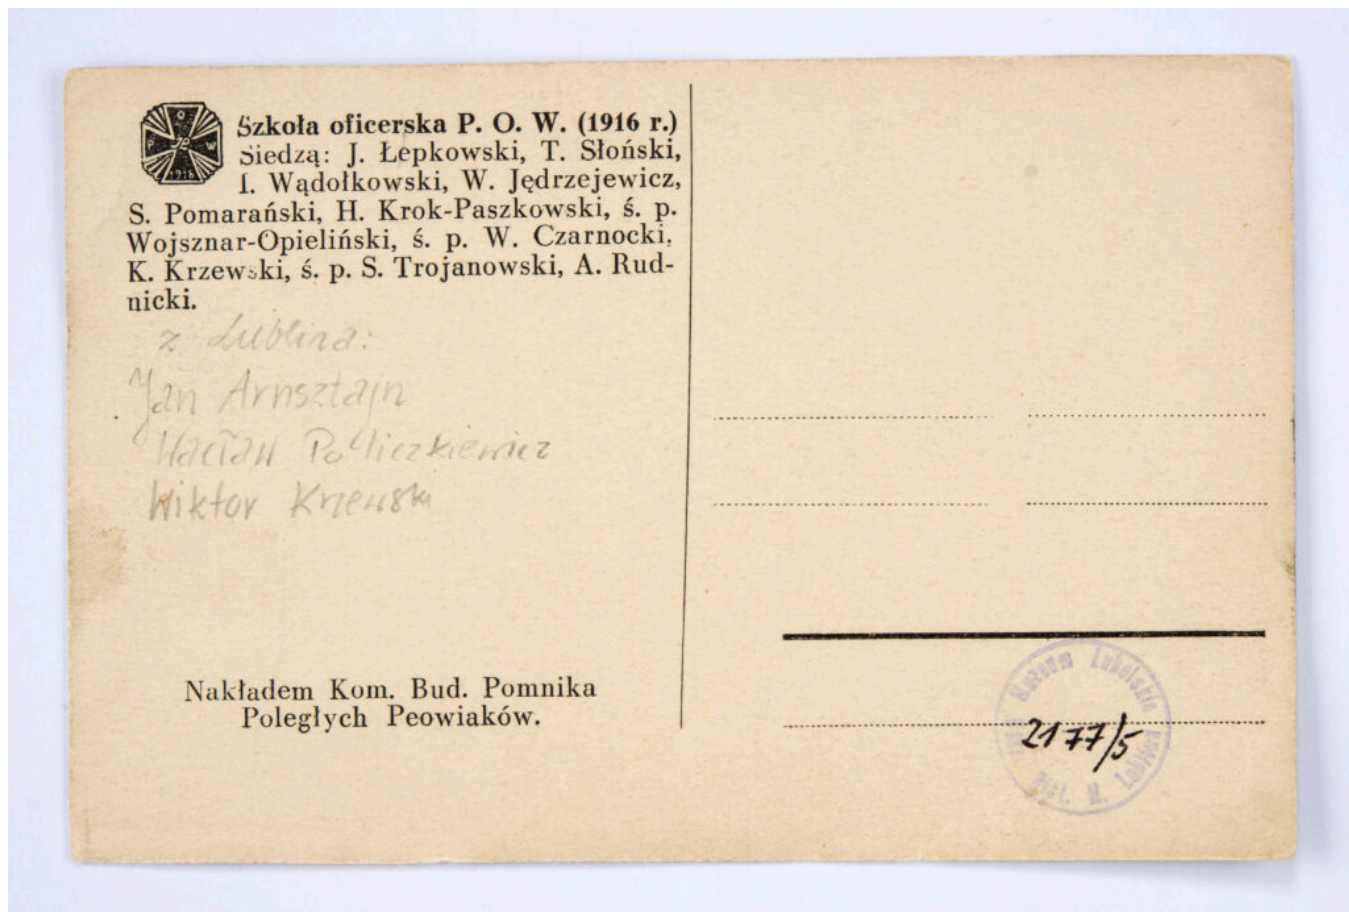 P O W 1918
Szkoła oficerska P. O. W. (1916 r.)
Siedzą: J. Łepkowski, T. Słoński,
I. Wądołkowski, W. Jędrzejewicz,
S. Pomarański, H. Krok-Paszkowski, ś. p.
Wojsznar-Opieliński, ś. p. W. Czarnocki,
K. Krzewski, ś. p. S. Trojanowski, A. Rud-
nicki.
z Lublina:
Jan Arnsztajn
Wacław
Wiktor Krzewski
Nakładem Kom. Bud. Pomnika
Poległych Peowiaków.
Muzeum Lubelskie
2177/5
Hist. M. Lublina